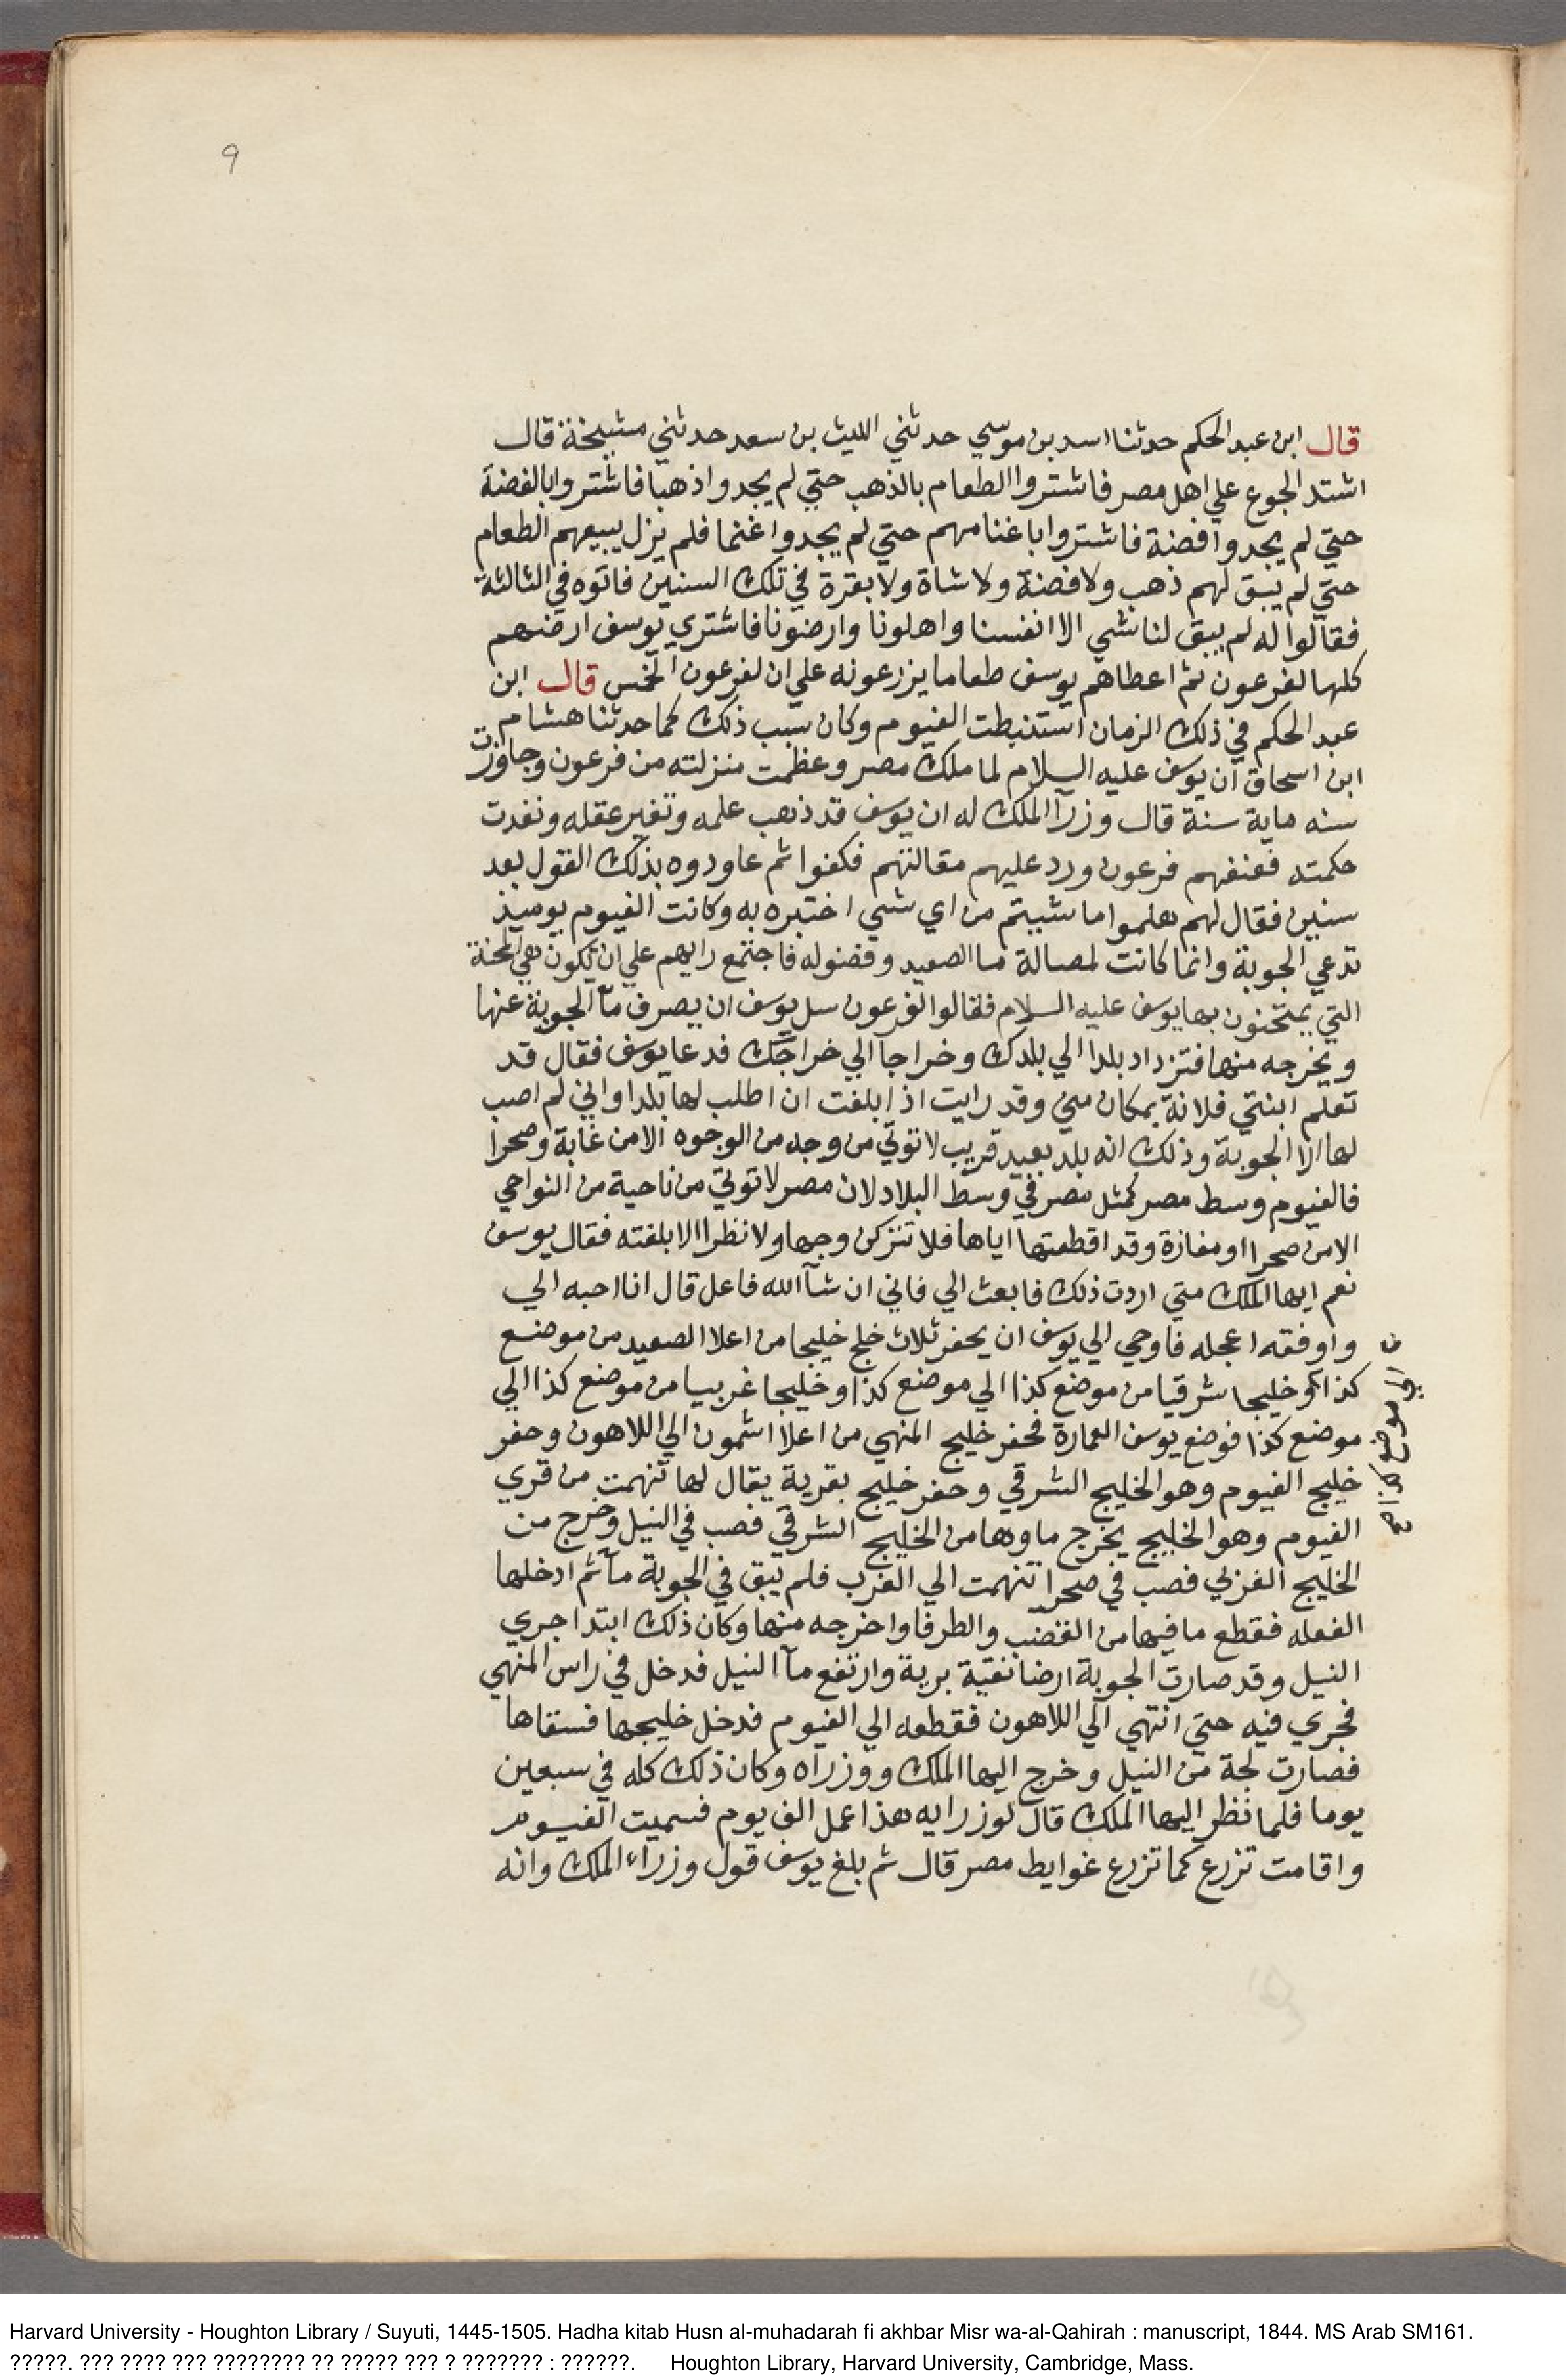 9
قال ابن عبد الحكم حدثنا اسد بن موسي حدثني الليث بن سعد حدثني مشيخة قال
اشتد الجوع علي اهل مصر فاشتروا الطعام بالذهب حتي لم يجدوا ذهبا فاشتروا بالفضة
حتي لم يجدوا فضة فاشتروا باغنامهم حتي لم يجدوا غنما فلم يزل يبيعهم الطعام
حتي لم يبق لهم ذهب ولا فضة ولا شاة ولا بقرة في تلك السنين فاتوه في الثالثة
فقالوا له لم يبق لنا شي الا انفسنا واهلونا وارضونا فاشتري يوسف ارضهم
كلها لفرعون ثم اعطاهم يوسف طعاما يزرعونه علي ان لفرعون الخمس قال ابن
عبد الحكم في ذلك الزمان استنبطت الفيوم وكان سبب ذلك كما حدثنا هشام
ابن اسحاق ان يوسف عليه السلام لما ملك مصر وعظمت منزلته من فرعون وجاوزت
سنه ماية سنة قال وزرآ الملك له ان يوسف قد ذهب علمه وتغير عقله ونفدت
حكمته فعنفهم فرعون ورد عليهم مقالتهم فكفوا ثم عاودوه بذلك القول بعد
سنين فقال لهم هلموا ما شيتم من اي شي اختبره به وكانت الفيوم يوميذ
تدعي الجوبة وانما كانت لمصالة ما الصعيد وفضوله فاجتمع رايهم علي ان تكون هي المحنة
التي يمتحنون بها يوسف عليه السلام فقالوا لفرعون سل يوسف ان يصرف مآ الجوبة عنها
ويخرجه منها فتزداد بلدا الي بلدك وخراجا الي خراجك فدعا يوسف فقال قد
تعلم ابنتي فلانة بمكان مني وقد رايت اذا بلغت ان اطلب لها بلدا واني لم اصب
لها الا الجوبة وذلك انه بلد بعيد قريب لا توتي من وجه من الوجوه الا من غابة وصحرا
فالفيوم وسط مصر كمثل مصر في وسط البلاد لان مصر لا توتي من ناحية من النواحي
الا من صحرا او مفازة وقد اقطعتها اياها فلا تتركن وجها ولا نظرا الا بلغته فقال يوسف
نعم ايها الملك متي اردت ذلك فابعث الي فاني ان شآ الله فاعل قال ان احبه الي
واوفقه اعجله فاوحي الي يوسف ان يحفر ثلاث خلج خليجا من اعلا الصعيد من موضع
كذا وخليجا شرقيا من موضع كذا الي موضع كذا وخليجا غربيا من موضع كذا الي
الي موضع كذا صح
موضع كذا فوضع يوسف العمارة فحفر خليج المنهي من اعلا اشمون الي اللاهون وحفر
خليج الفيوم وهو الخليج الشرقي وحفر خليج بقرية يقال لها تنهمت من قري
الفيوم وهو الخليج يخرج ماوها من الخليج الشرقي فصب في النيل وخرج من
الخليج الغربي فصب في صحرا تنهمت الي الغرب فلم يبق في الجوبة مآ ثم ادخلها
الفعله فقطع ما فيها من القضب والطرفا واخرجه منها وكان ذلك ابتدا جري
النيل وقد صارت الجوبة ارضا نقية برية وارتفع مآ النيل فدخل في راس المنهي
فجري فيه حتي انتهي الي اللاهون فقطعه الي الفيوم فدخل خليجها فسقاها
فصارت لجة من النيل وخرج اليها الملك ووزراه وكان ذلك كله في سبعين
يوما فلما نظر اليها الملك قال لوزرايه هذا عمل الف يوم فسميت الفيوم
واقامت تزرع كما تزرع غوايط مصر قال ثم بلغ يوسف قول وزراء الملك وانه
Harvard University - Houghton Library / Suyuti, 1445-1505. Hadha kitab Husn al-muhadarah fi akhbar Misr wa-al-Qahirah : manuscript, 1844. MS Arab SM161.
?????. ??? ???? ??? ???????? ?? ????? ??? ? ??????? : ??????. Houghton Library, Harvard University, Cambridge, Mass.